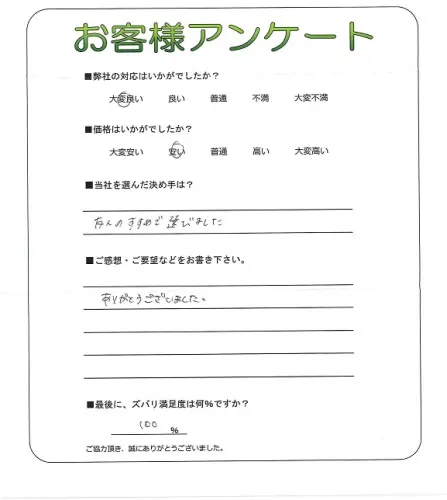 お客様アンケート
■弊社の対応はいかがでしたか？
大変良い 良い 普通 不満 大変不満
■価格はいかがでしたか？
大変安い 安い 普通 高い 大変高い
■当社を選んだ決め手は？
友人のすすめで選びました
■ご感想・ご要望などをお書き下さい。
ありがとうございました。
■最後に、ズバリ満足度は何％ですか？
100 %
ご協力頂き、誠にありがとうございました。